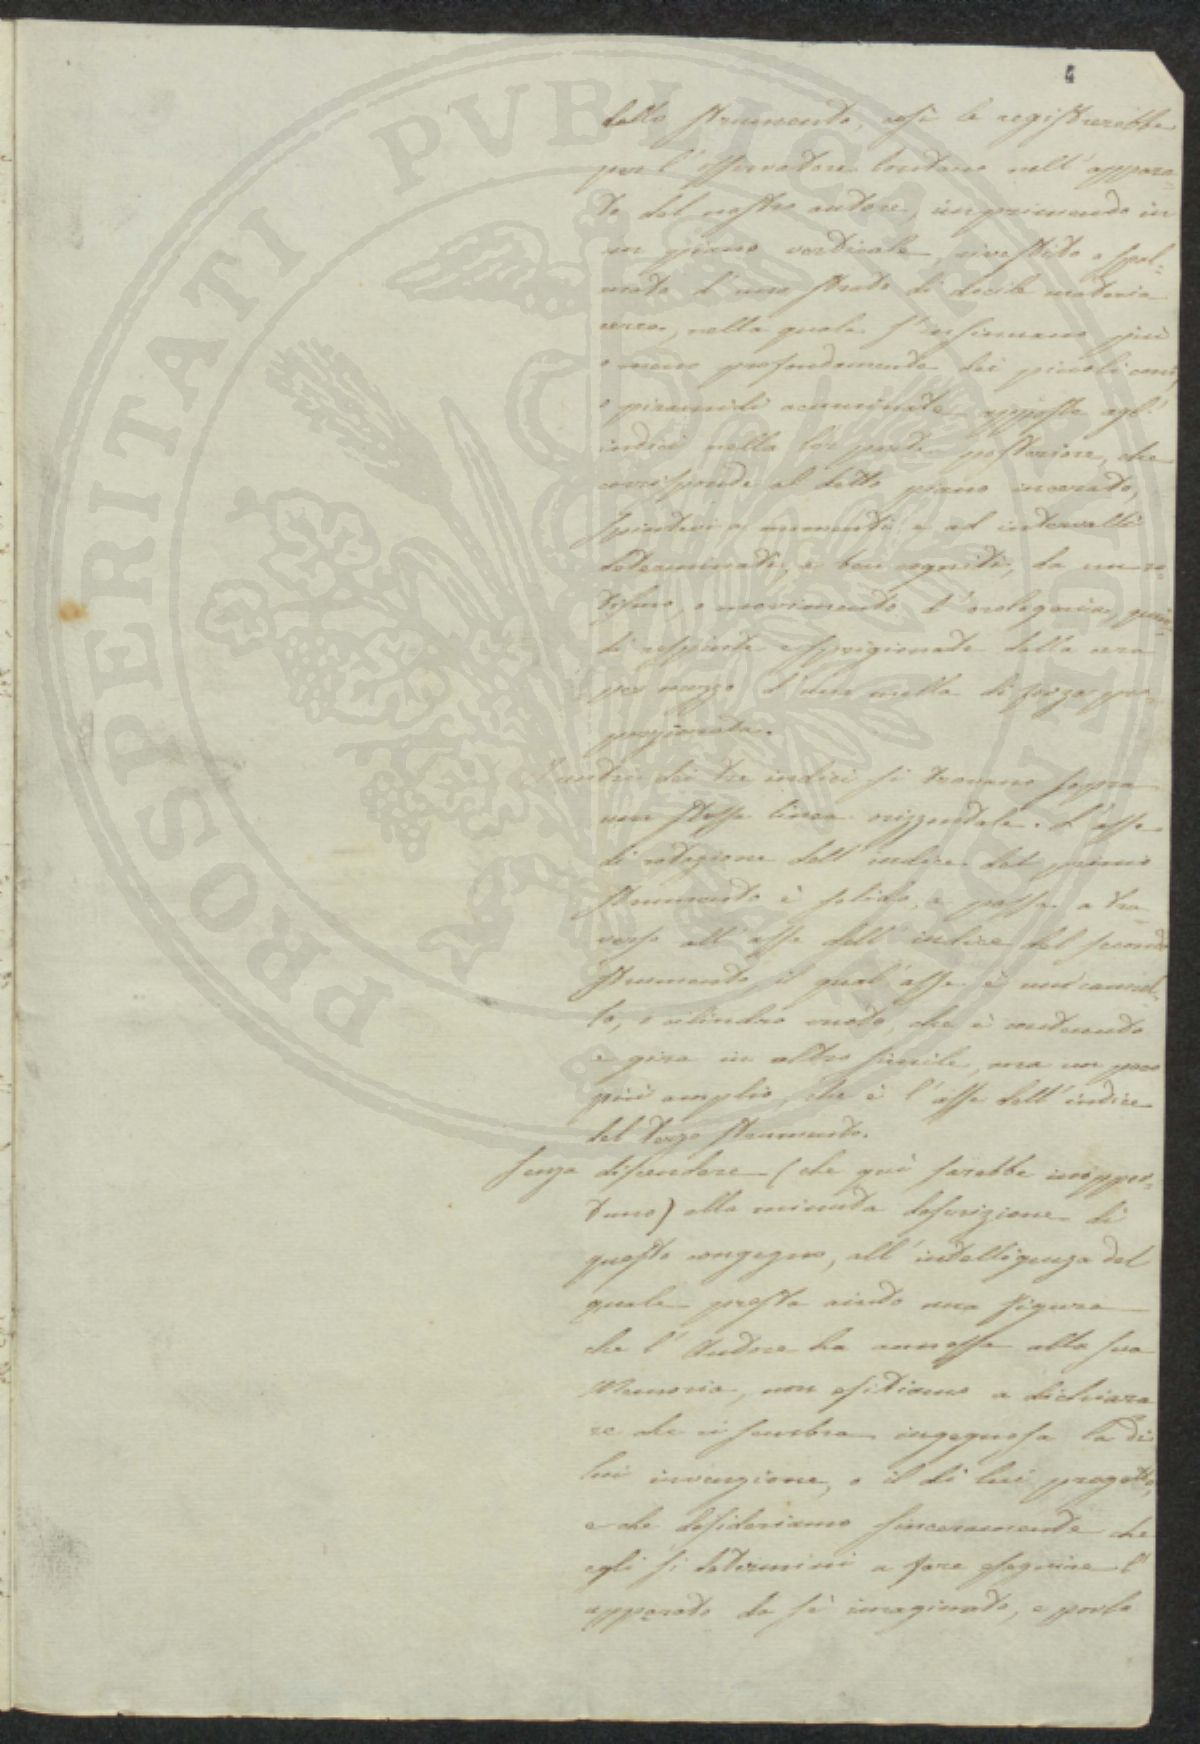 4
detto strumento, così le registrerebbe
per l'osservatore lontano nell'appara-
to del nostro autore, imprimendo in
un piano verticale, rivestito e spal-
mato d'uno strato di docile materia
cerea, nella quale s'insinuano più
o meno profondamente dei piccoli coni,
o piramidi acuminate apposte agl'
indici nella lor parte posteriore, che
corrisponde al detto piano incerato,
spintevi a momenti e ad intervalli
determinati, e ben cogniti, da un ro-
tismo, o movimento d'orologeria, quin-
di respinte e sprigionate dalla cera
per mezzo d'una molla di forza pro-
porzionata.
I centri dei tre indici si trovano sopra
una stessa linea orizzontale. L'asse
di rotazione dell'indice del primo
strumento è solido, e passa a tra-
verso all'asse dell'indice del secondo
strumento, il qual'asse è un cannel-
lo, o cilindro vuoto, che è contenuto
e gira in altro simile, ma un poco
più amplio, che è l'asse dell'indice
del terzo strumento.
Senza discendere (che quì sarebbe inoppor-
tuno) alla minuta descrizione di
questo congegno, all'intelligenza del
quale presta aiuto una figura
che l'Autore ha annessa alla sua
Memoria, non esitiamo a dichiara
re che ci sembra ingegnosa la di
lui invenzione, o il di lui progetto,
e che desideriamo sinceramente che
egli si determini a fare eseguire l'
apparato da sè imaginato, e porlo
PROSPERITATI PVBLICAE